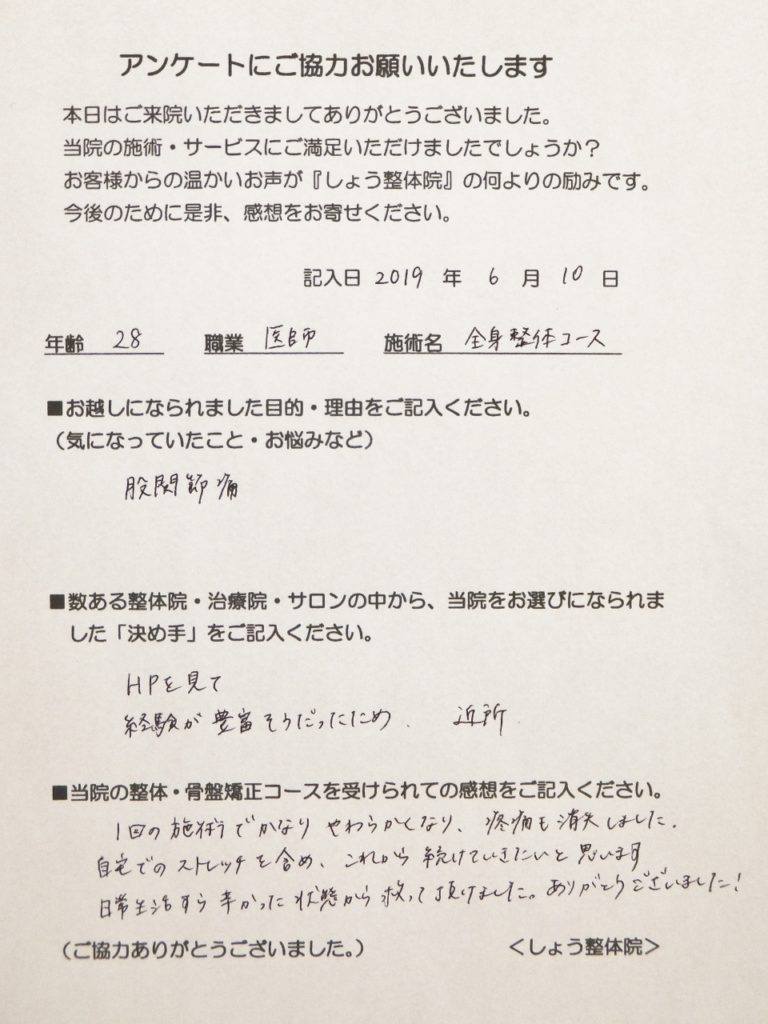 アンケートにご協力お願いいたします
本日はご来院いただきましてありがとうございました。
当院の施術・サービスにご満足いただけましたでしょうか？
お客様からの温かいお声が『しょう整体院』の何よりの励みです。
今後のために是非、感想をお寄せください。
記入日 2019 年 6 月 10 日
年齢 28 職業 医師 施術名 全身整体コース
■お越しになられました目的・理由をご記入ください。
（気になっていたこと・お悩みなど）
股関節痛
■数ある整体院・治療院・サロンの中から、当院をお選びになられま
した「決め手」をご記入ください。
HPを見て
経験が豊富そうだったため、 近所
■当院の整体・骨盤矯正コースを受けられての感想をご記入ください。
1回の施術でかなりやわらかくなり、疼痛も消失しました。
自宅でのストレッチを含め、これから続けていきたいと思います
日常生活すら辛かった状態から救って頂けました。ありがとうございました！
（ご協力ありがとうございました。） ＜しょう整体院＞